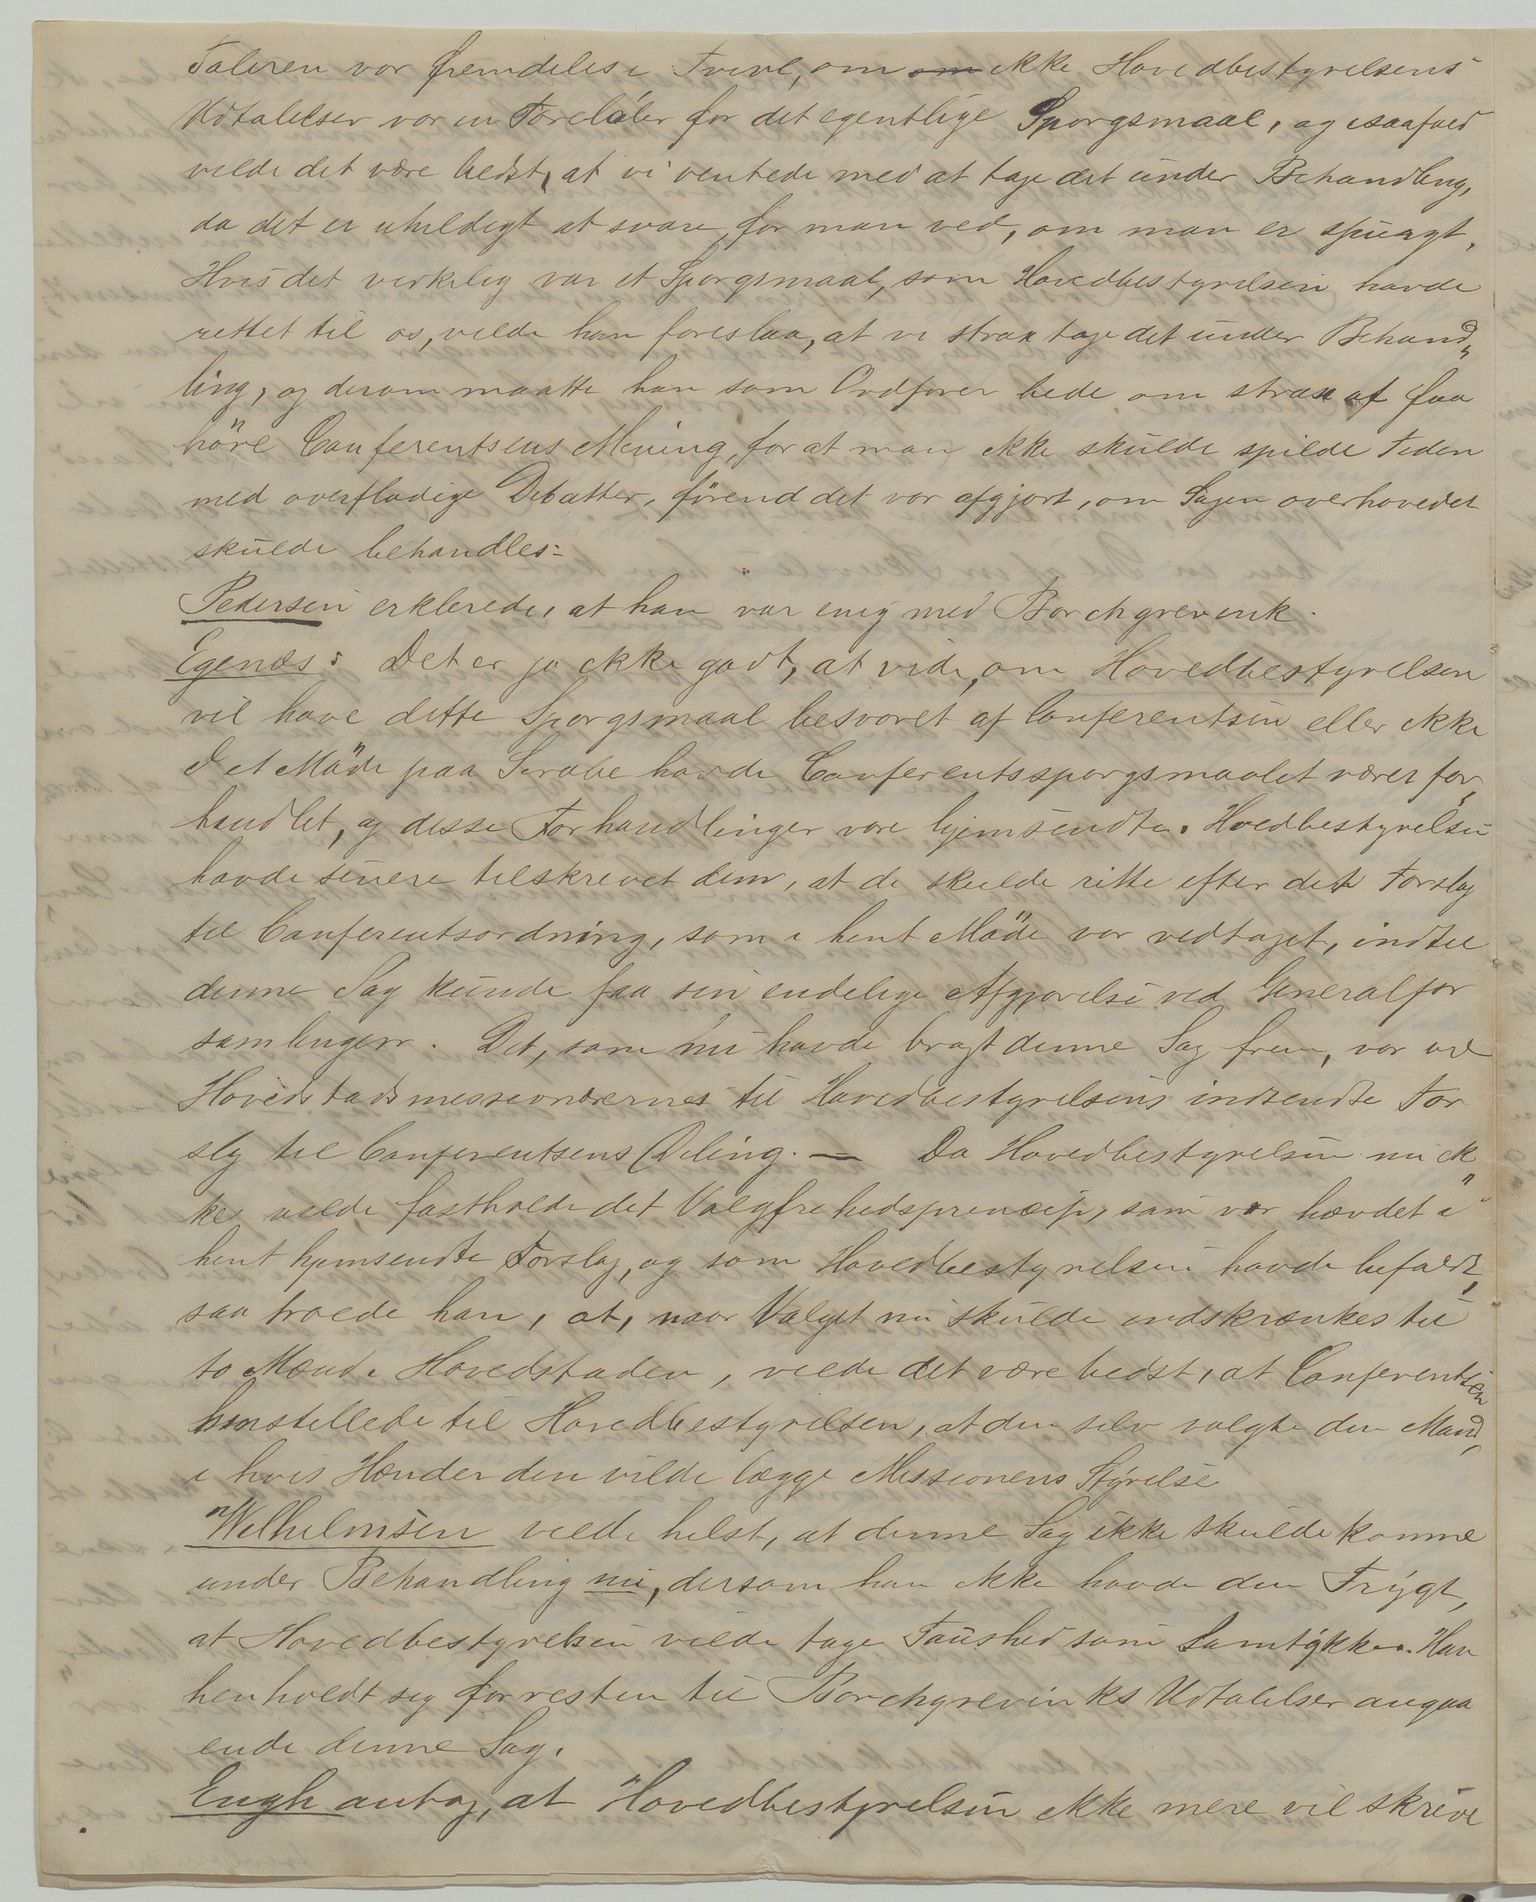 Taleren var fremdeles i Tvivl, om om ikke Hovedbestyrelsens
Udtalelser var en Foreløber for det egentlige Spørgsmaal, og isaafald
vilde det være bedst, at vi ventede med at tage det under Behandling,
da det er uheldigt at svare før man ved, om man er spurgt.
Hvis det verkelig var et Spørgsmaal, som Hovedbestyrelsen havde
rettet til os, vilde han foreslaa, at vi strax tage det under Behand„
ling, og derom maatte han som Ordfører bede om strax at faa
høre Conferentsens Mening, for at man ikke skulde spilde Tiden
med overflødige Debatter, førend det var afgjort, om Sagen overhovedet
skulde behandles.
Pedersen erklerede, at han var enig med Borchgrevink.
Egenæs: Det er jo ikke godt, at vide, om Hovedbestyrelsen
vil have dette Spørgsmaal besvaret af Conferentsen eller ikke
I et Møde paa Sirabe havde Conferentsspørgsmaalet været for„
handlet, og disse Forhandlinger vare hjemsendte. Hovedbestyrelsen
havde senere tilskrevet dem, at de skulde rette efter det Forslag
til Conferentsordning, som i hint Møde var vedtaget, indtil
denne Sag kunde faa sin endelige Afgjørelse ved Generalfor
samlingen. Det, som nu havde bragt denne Sag frem, var vel
Hovedstadsmissionærernes til Hovedbestyrelsens indsendte For
slg til Conferentsens Deling. — Da Hovedbestyrelsen nu ik„
ke vilde fastholde det Valgfrihedsprincip, som var hævdet i
hint hjemsendte Forslag, og som Hovedbestyrelsen havde befalet,
saa troede han, at, naar Valget nu skulde indskrænkes til
to Mænd i Hovedstaden, vilde det være bedst, at Conferentsen
henstillede til Hovedbestyrelsen, at den selv valgte den Mand,
i hvis Hænder den vilde lægge Missionens Styrelse
Wilhelmsen vilde helst, at denne Sag ikke skulde komme
under Behandling nu, dersom han ikke havde den Frygt,
at Hovedbestyrelsen vilde tage Taushed som Samtykke. Han
henholdt sig forresten til Borchgrevinks Udtalelser angaa
ende denne Sag.
Engh antog, at Hovedbestyrelsen ikke mere vil skrive